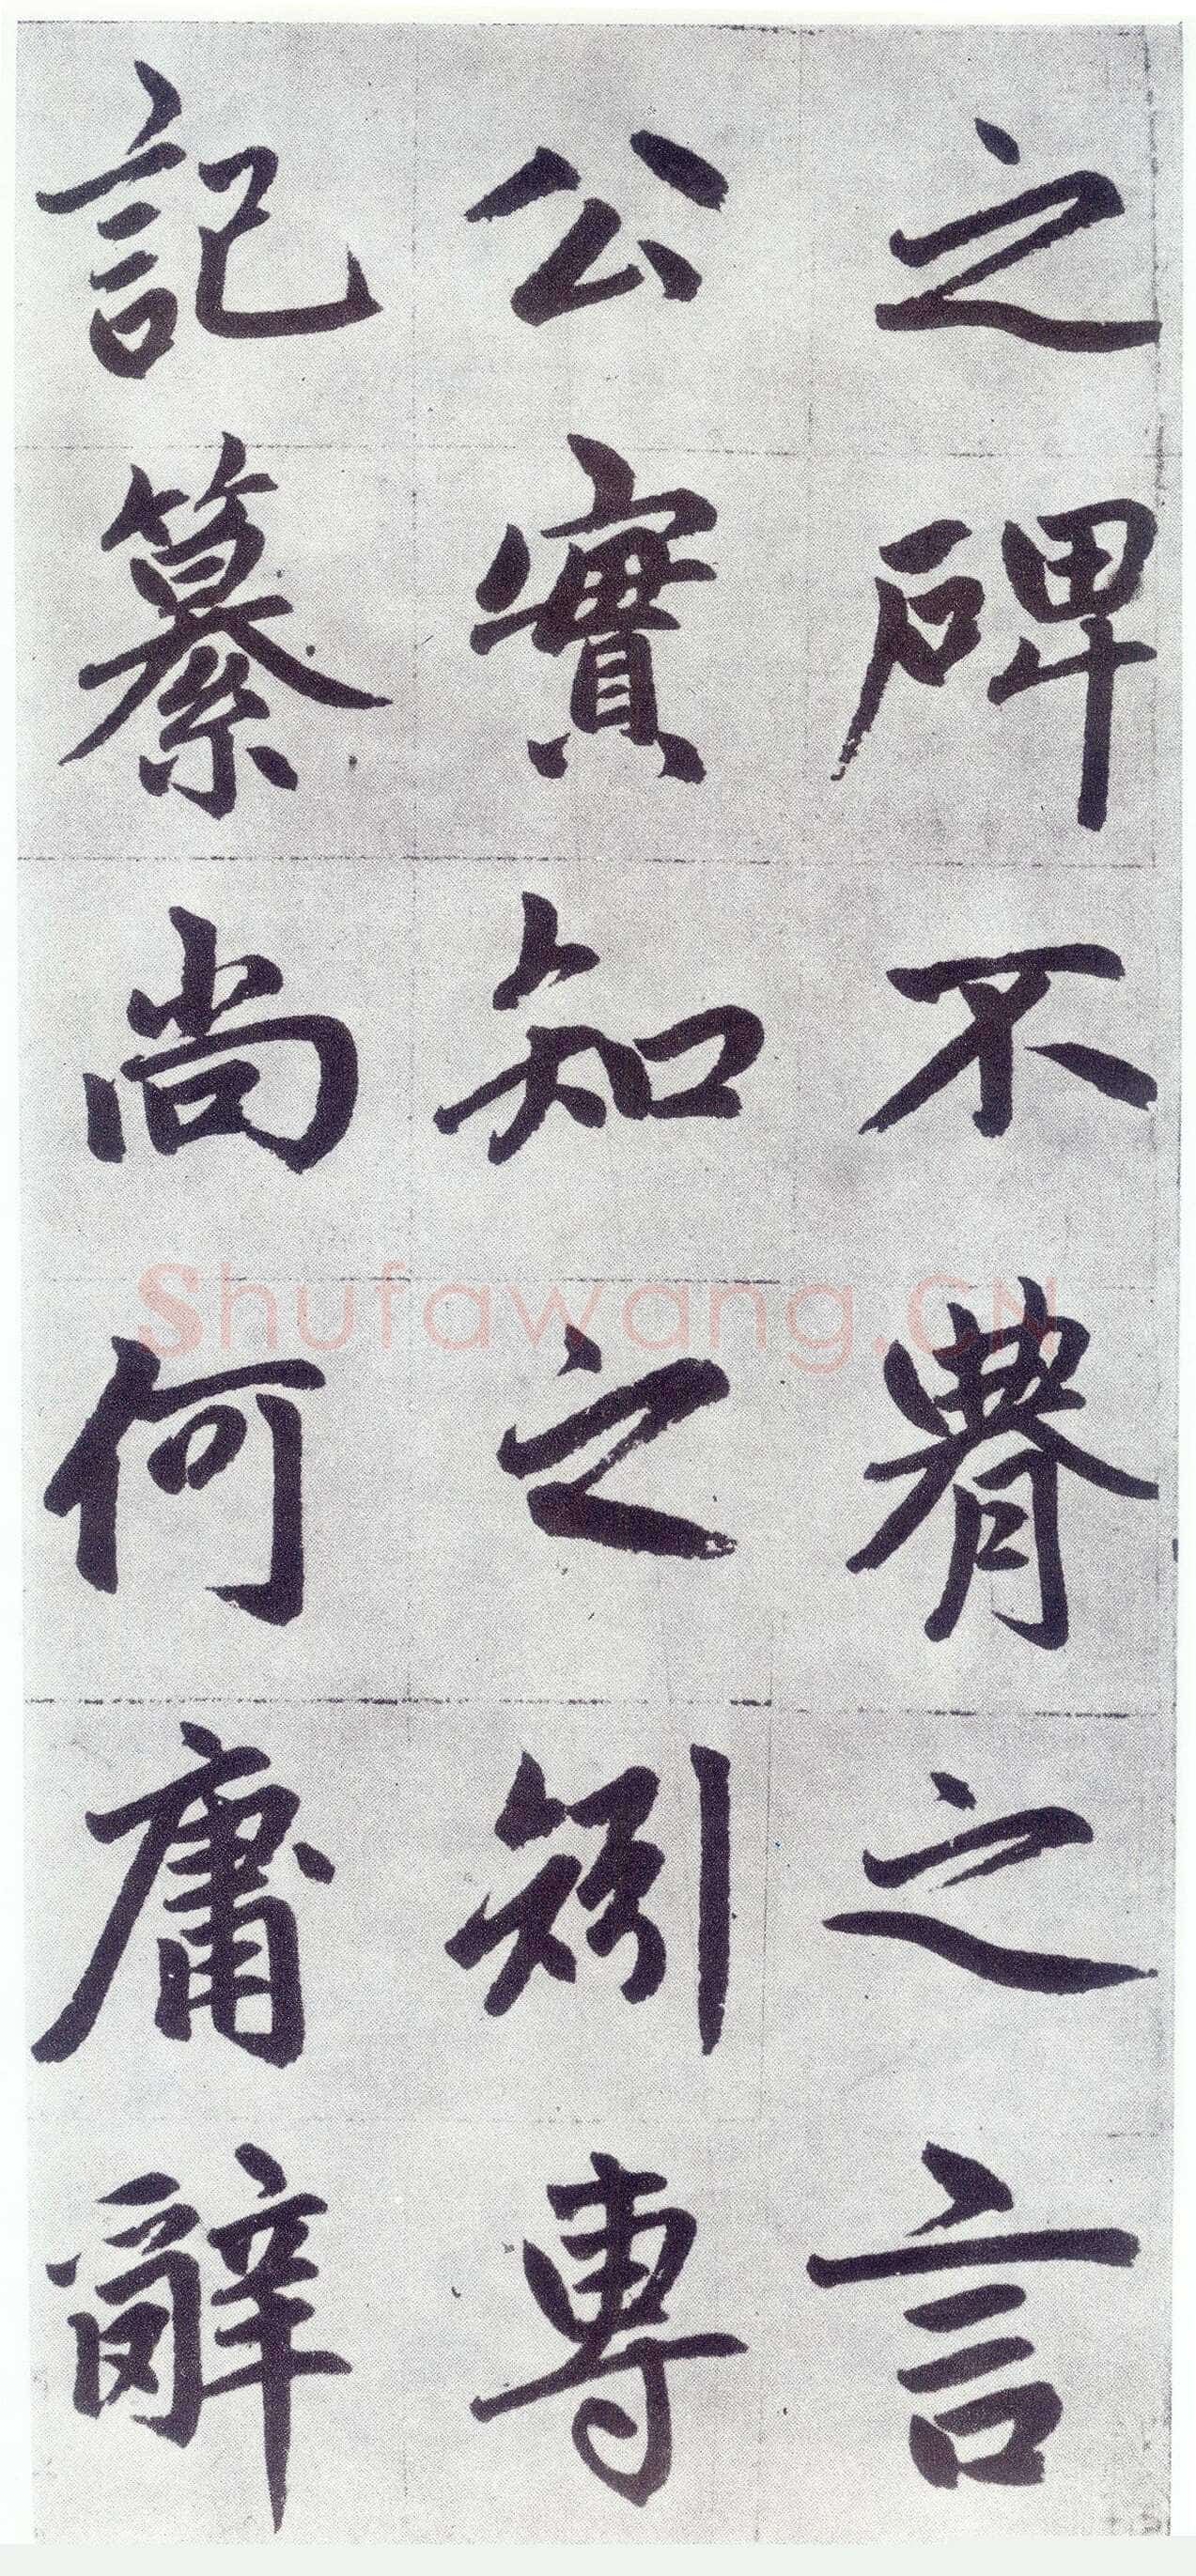 之碑不之言
公實知之矧專
記纂尚何庸辭
Shufawang.CN